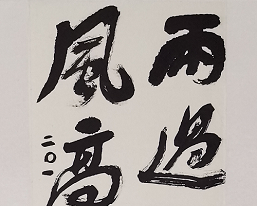 雨過
風高
二〇一